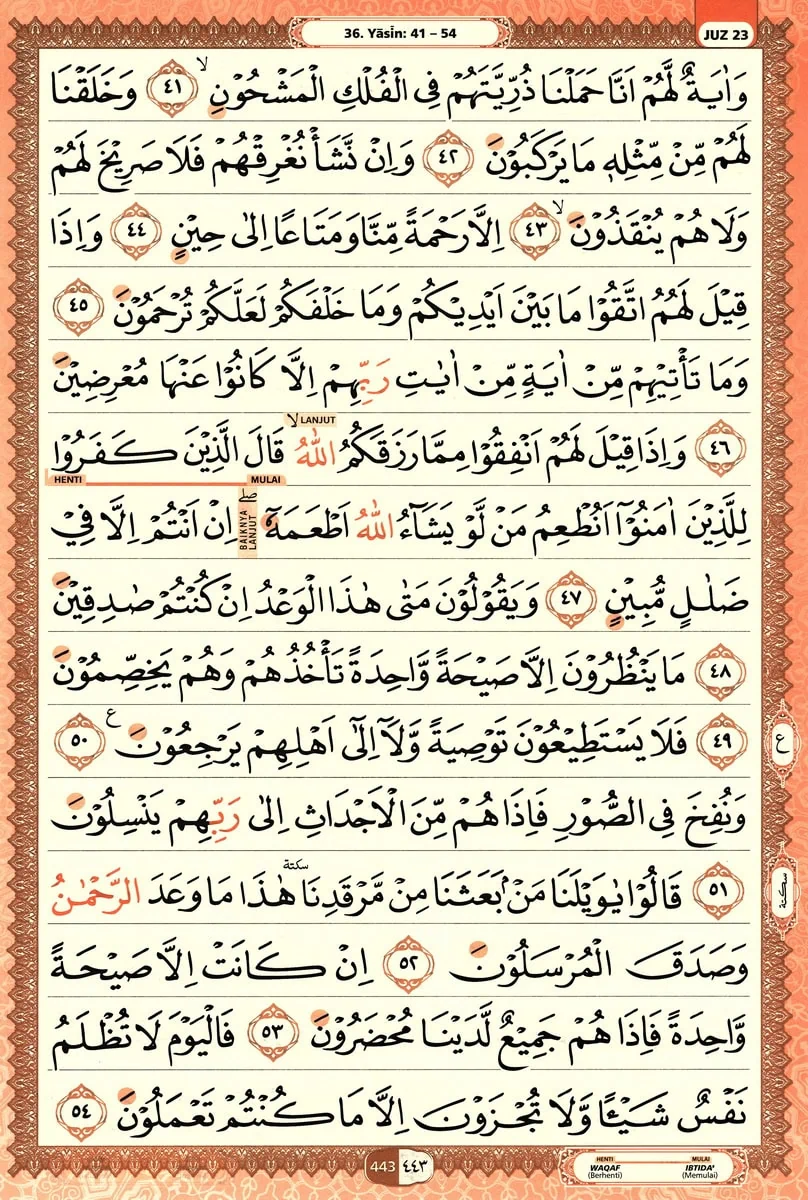 36. Yāsīn: 41 – 54
JUZ 23
وَاٰيَةٌ لَّهُمْ اَنَّا حَمَلْنَا ذُرِّيَّتَهُمْ فِى الْفُلْكِ الْمَشْحُوْنِۙ ٤١ وَخَلَقْنَا
لَهُمْ مِّنْ مِّثْلِهٖ مَا يَرْكَبُوْنَ ٤٢ وَاِنْ نَّشَأْ نُغْرِقْهُمْ فَلَا صَرِيْخَ لَهُمْ
وَلَا هُمْ يُنْقَذُوْنَۙ ٤٣ اِلَّا رَحْمَةً مِّنَّا وَمَتَاعًا اِلٰى حِيْنٍ ٤٤ وَاِذَا
قِيْلَ لَهُمُ اتَّقُوْا مَا بَيْنَ اَيْدِيْكُمْ وَمَا خَلْفَكُمْ لَعَلَّكُمْ تُرْحَمُوْنَ ٤٥
وَمَا تَأْتِيْهِمْ مِّنْ اٰيَةٍ مِّنْ اٰيٰتِ رَبِّهِمْ اِلَّا كَانُوْا عَنْهَا مُعْرِضِيْنَ
LANJUT
٤٦ وَاِذَا قِيْلَ لَهُمْ اَنْفِقُوْا مِمَّا رَزَقَكُمُ اللّٰهُ ۙ قَالَ الَّذِيْنَ كَفَرُوْا
MULAI HENTI
لِلَّذِيْنَ اٰمَنُوْٓا اَنُطْعِمُ مَنْ لَّوْ يَشَاۤءُ اللّٰهُ اَطْعَمَهٗٓ ۖ اِنْ اَنْتُمْ اِلَّا فِيْ
BAIKNYA LANJUT
ضَلٰلٍ مُّبِيْنٍ ٤٧ وَيَقُوْلُوْنَ مَتٰى هٰذَا الْوَعْدُ اِنْ كُنْتُمْ صٰدِقِيْنَ
٤٨ مَا يَنْظُرُوْنَ اِلَّا صَيْحَةً وَّاحِدَةً تَأْخُذُهُمْ وَهُمْ يَخِصِّمُوْنَ
٤٩ فَلَا يَسْتَطِيْعُوْنَ تَوْصِيَةً وَّلَآ اِلٰٓى اَهْلِهِمْ يَرْجِعُوْنَ ع ٥٠
ع
وَنُفِخَ فِى الصُّوْرِ فَاِذَا هُمْ مِّنَ الْاَجْدَاثِ اِلٰى رَبِّهِمْ يَنْسِلُوْنَ
٥١ قَالُوْا يٰوَيْلَنَا مَنْۢ بَعَثَنَا مِنْ مَّرْقَدِنَا سكتة هٰذَا مَا وَعَدَ الرَّحْمٰنُ
سكتة
وَصَدَقَ الْمُرْسَلُوْنَ ٥٢ اِنْ كَانَتْ اِلَّا صَيْحَةً
وَّاحِدَةً فَاِذَا هُمْ جَمِيْعٌ لَّدَيْنَا مُحْضَرُوْنَ ٥٣ فَالْيَوْمَ لَا تُظْلَمُ
نَفْسٌ شَيْـًٔا وَّلَا تُجْزَوْنَ اِلَّا مَا كُنْتُمْ تَعْمَلُوْنَ ٥٤
443 ٤٤٣
HENTI MULAI
WAQAF IBTIDA'
(Berhenti) (Memulai)